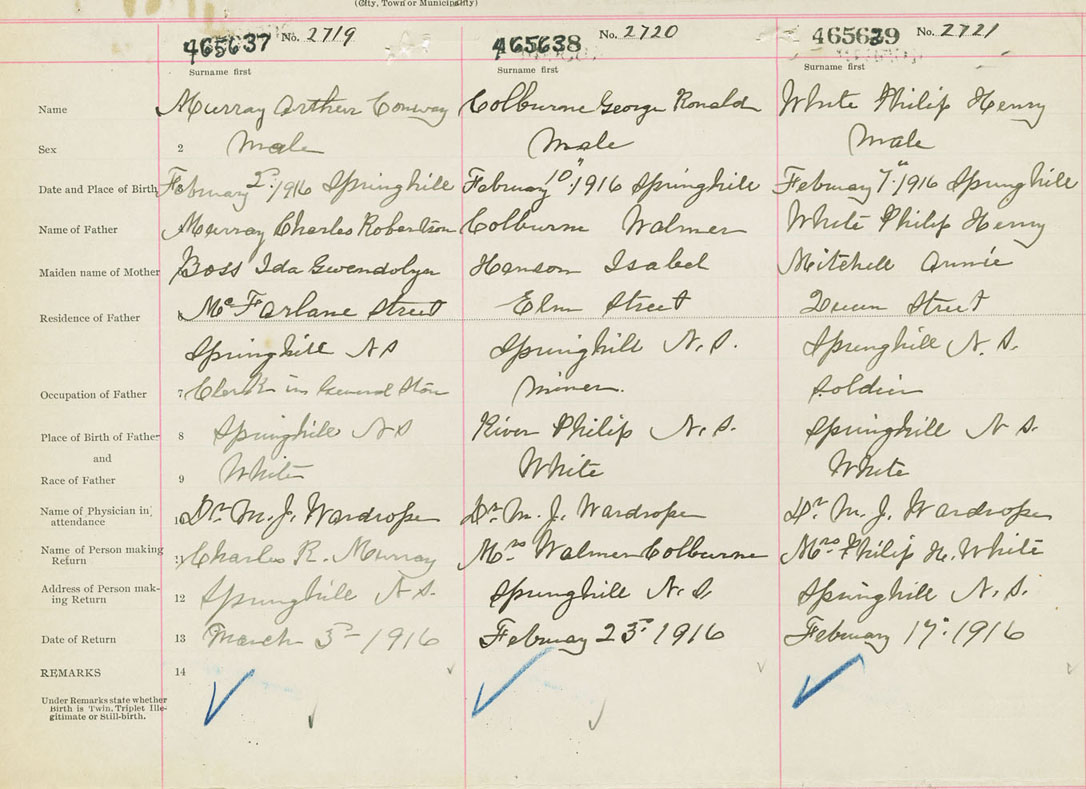 (City, Town or Municipality)
465637 No. 2719 465638 No. 2720 465639 No. 2721
Surname first Surname first Surname first
Name Murray Arthur Conway Colburne George Ronald White Philip Henry
Sex 2 Male Male Male
Date and Place of Birth 3 February 2nd 1916 Springhill February 10th 1916 Springhill February 7th 1916 Springhill
Name of Father Murray Charles Robertson Colburne Walmer White Philip Henry
Maiden name of Mother Boss Ida Gwendolyn Hanson Isabel Mitchell Annie
Residence of Father 6 McFarlane Street Elm Street Queen Street
Springhill N S Springhill N. S. Springhill N. S.
Occupation of Father 7 Clerk in General Store Miner. Soldier
Place of Birth of Father 8 Springhill N S River Philip N. S. Springhill N S.
and
Race of Father 9 White White White
Name of Physician in attendance 10 Dr M. J. Wardrope Dr M. J. Wardrope Dr M. J. Wardrope
Name of Person making Return 11 Charles R. Murray Mrs Walmer Colburne Mrs Philip H. White
Address of Person making Return 12 Springhill N S. Springhill N. S. Springhill N. S.
Date of Return 13 March 3rd 1916 February 23rd 1916 February 17th 1916
REMARKS 14
Under Remarks state whether
Birth is Twin, Triplet Ille-
gitimate or Still-birth.